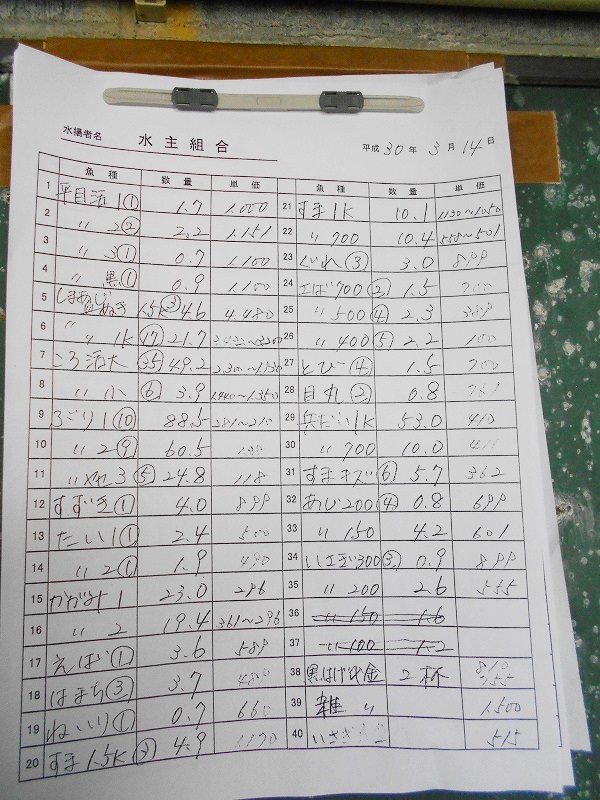 水揚者名 水主組合 平成30年3月14日
魚種 数量 単価
1 平目活1① 1.7 1.000
2 〃 2② 2.2 1.151
3 〃 3① 0.7 1.100
4 〃 黒① 0.9 1.100
5 しまあじ 1.5③ 4.6 4.480
6 〃 〃 1k⑰ 21.7
7 ころ活大 ㉟ 49.2
8 〃 小 ⑥ 3.9 1.440~1.350
9 ⑩ 88.5 281~210
10 〃 2⑨ 60.5
11 〃 3⑤ 24.8 118
12 すずき① 4.0 899
13 たい1① 2.4 500
14 〃 2① 1.9 490
15 かがみ1 23.0 296
16 〃 2 19.4 361~296
17 えばい① 3.6 589
18 はまち③ 3.7 489
19 ねいり① 0.7 660
20 すま1.5K③ 4.9 1170
魚種 数量 単価
21 すま1K 10.1 1130~1050
22 〃 700 10.4 558~501
23 ぐれ③ 3.0 899
24 エば700② 1.5 700
25 〃 500④ 2.3 389
26 〃 400⑤ 2.2 100
27 とび④ 1.5 700
28 目丸② 0.8
29 1K 53.0 410
30 〃 700 10.0
31 すまキズ⑥ 5.7 362
32 あじ200④ 0.8 699
33 〃 150 4.2 601
34 300③ 0.9 899
35 〃 200 2.6 555
36 〃 150 1.6
37 〃 100 1.2
38 黒はげ 2杯 810 755
39 雑 〃 1.500
40 いさぎ 515